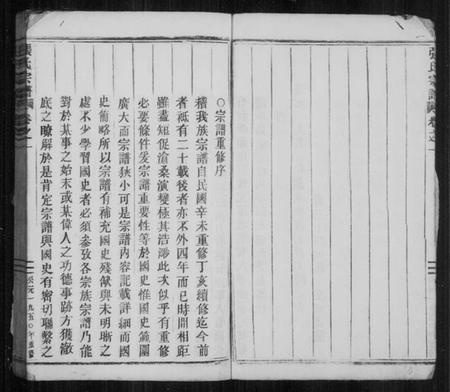 張氏宗譜
卷之一
○宗譜重修序
稽我族宗譜自民國辛未重修丁亥續修迄今前
者祗有二十載後者亦不外四年而已時間相距
雖盡短促滄桑演變極其浩渺此次似乎有重修
必要條件爰宗譜重要性等於國史惟國史範圍
廣大而宗譜狹小可是宗譜內容記載詳細而國
史簡略所以宗譜有補充國史殘缺與未明晰之
處不少學習國史者必須參攷各宗族宗譜乃能
對於某事之始末或某偉人之功德事跡方獲澈
底之瞭解於是肯定宗譜與國史有密切聯繫之
張氏宗譜
卷之一
公元一九五〇年重修